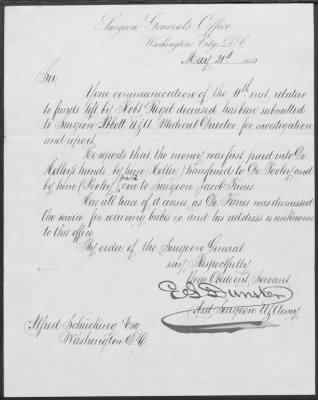 Surgeon General's Office
Washington City, D.C.
May 21st 1863
Sir,
Your communication of the 11th inst, relative
to funds left by Robt deceased has been submitted
to Surgeon Abbott U.S.A. Medical Director for investigation
and report.
He reports that the money was first paid into Dr
Heller's hands, by him (Heller) transferred to Dr Pooler, and
by him (Pooler) paid over to Surgeon Jacob
Here all trace of it ceases as Dr was dismissed
the service for receiving bribes &c and his address is unknown
to this office.
By order of the Surgeon General
Very Respectfully
Your Obedient Servant
E S Dunster
Asst. Surgeon U.S. Army
Alfred Schücking Esq
Washington D.C.